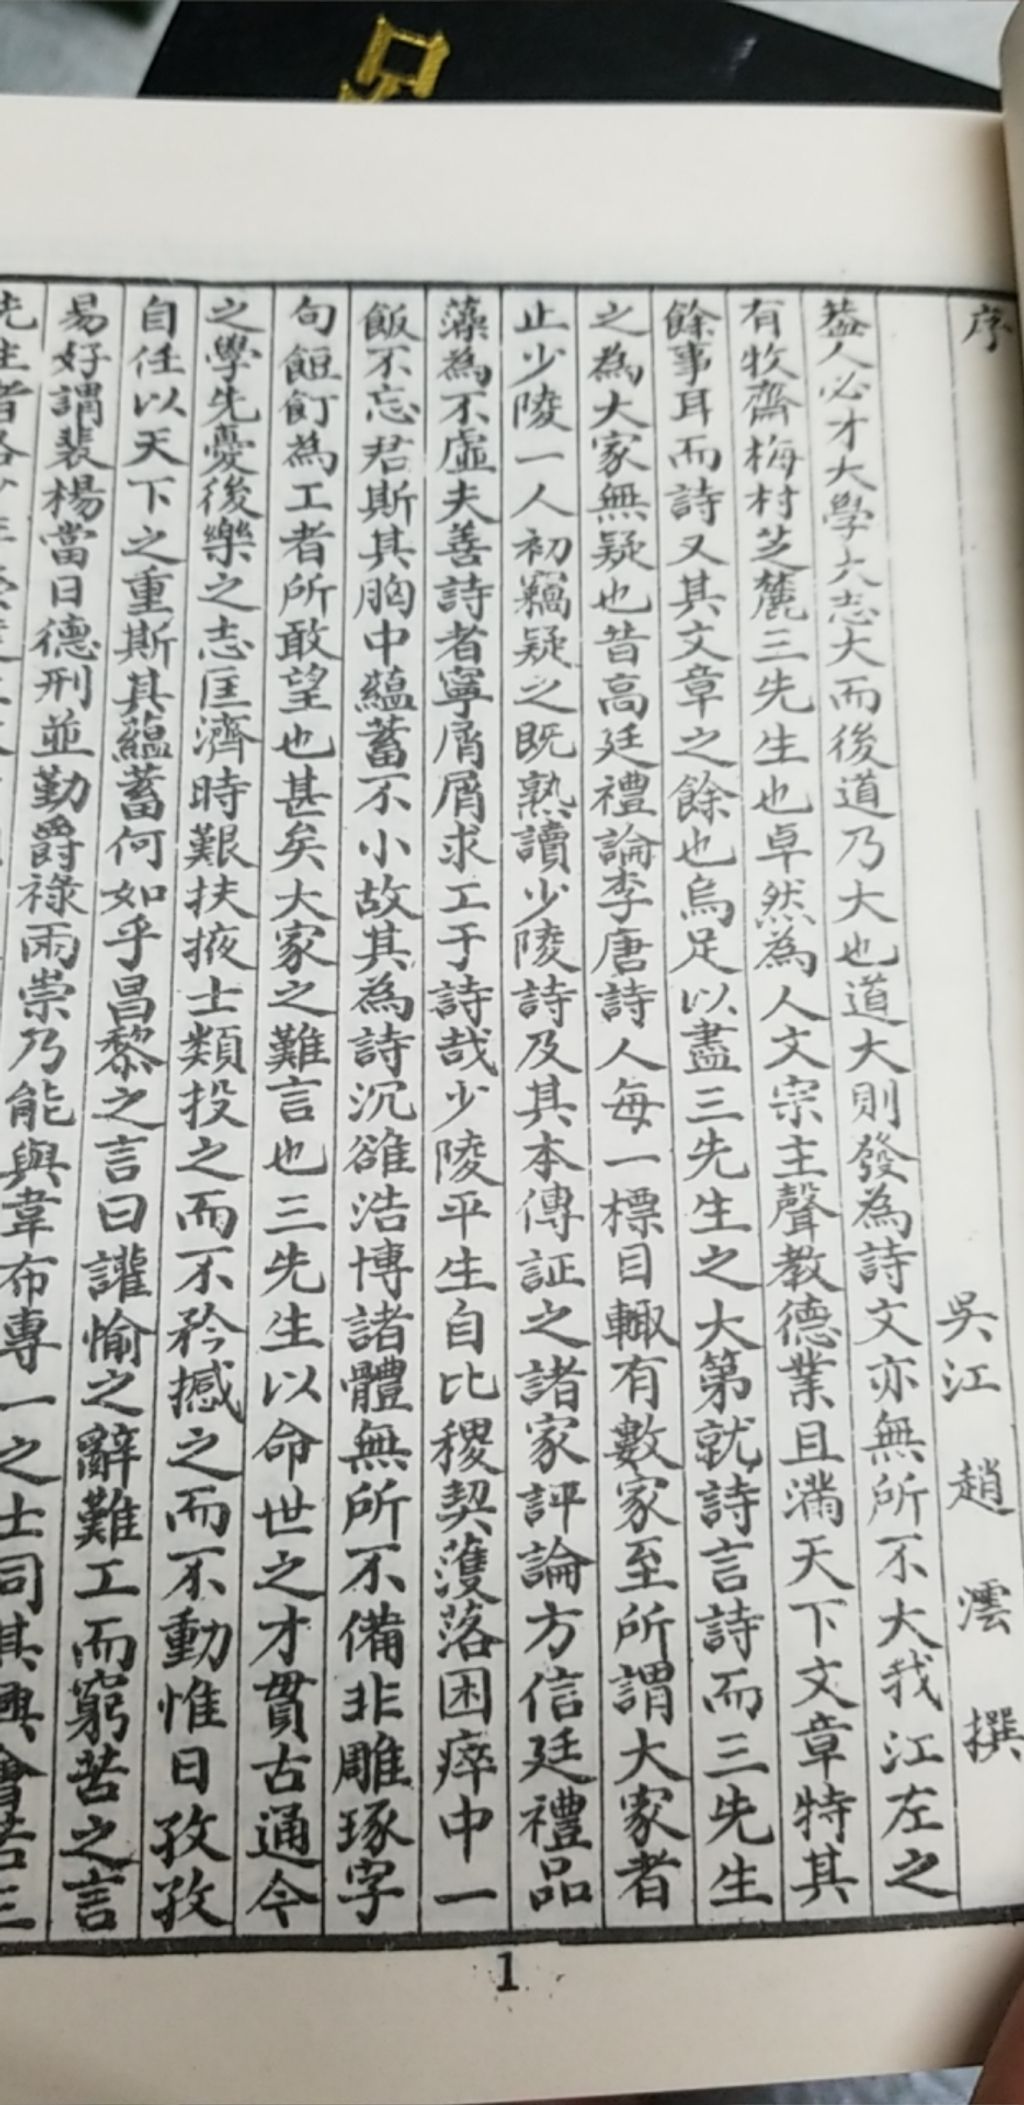 序
吳江 趙澐 撰
葢人必才大學大志大而後道乃大也道大則發為詩文亦無所不大我江左之
有牧齋梅村芝麓三先生也卓然為人文宗主聲教德業且滿天下文章特其
餘事耳而詩又其文章之餘也烏足以盡三先生之大第就詩言詩而三先生
之為大家無疑也昔高廷禮論李唐詩人每一標目輙有數家至所謂大家者
止少陵一人初竊疑之既熟讀少陵詩及其本傳証之諸家評論方信廷禮品
藻為不虛夫善詩者寧屑屑求工于詩哉少陵平生自比稷契濩落困瘁中一
飯不忘君斯其胸中蘊蓄不小故其為詩沉雄浩博諸體無所不備非雕琢字
句餖飣為工者所敢望也甚矣大家之難言也三先生以命世之才貫古通今
之學先憂後樂之志匡濟時艱扶掖士類投之而不矜撼之而不動惟日孜孜
自任以天下之重斯其蘊蓄何如乎昌黎之言曰讙愉之辭難工而窮苦之言
易好謂裴楊當日德刑並勤爵祿兩崇乃能與韋布專一之士同其興會若三